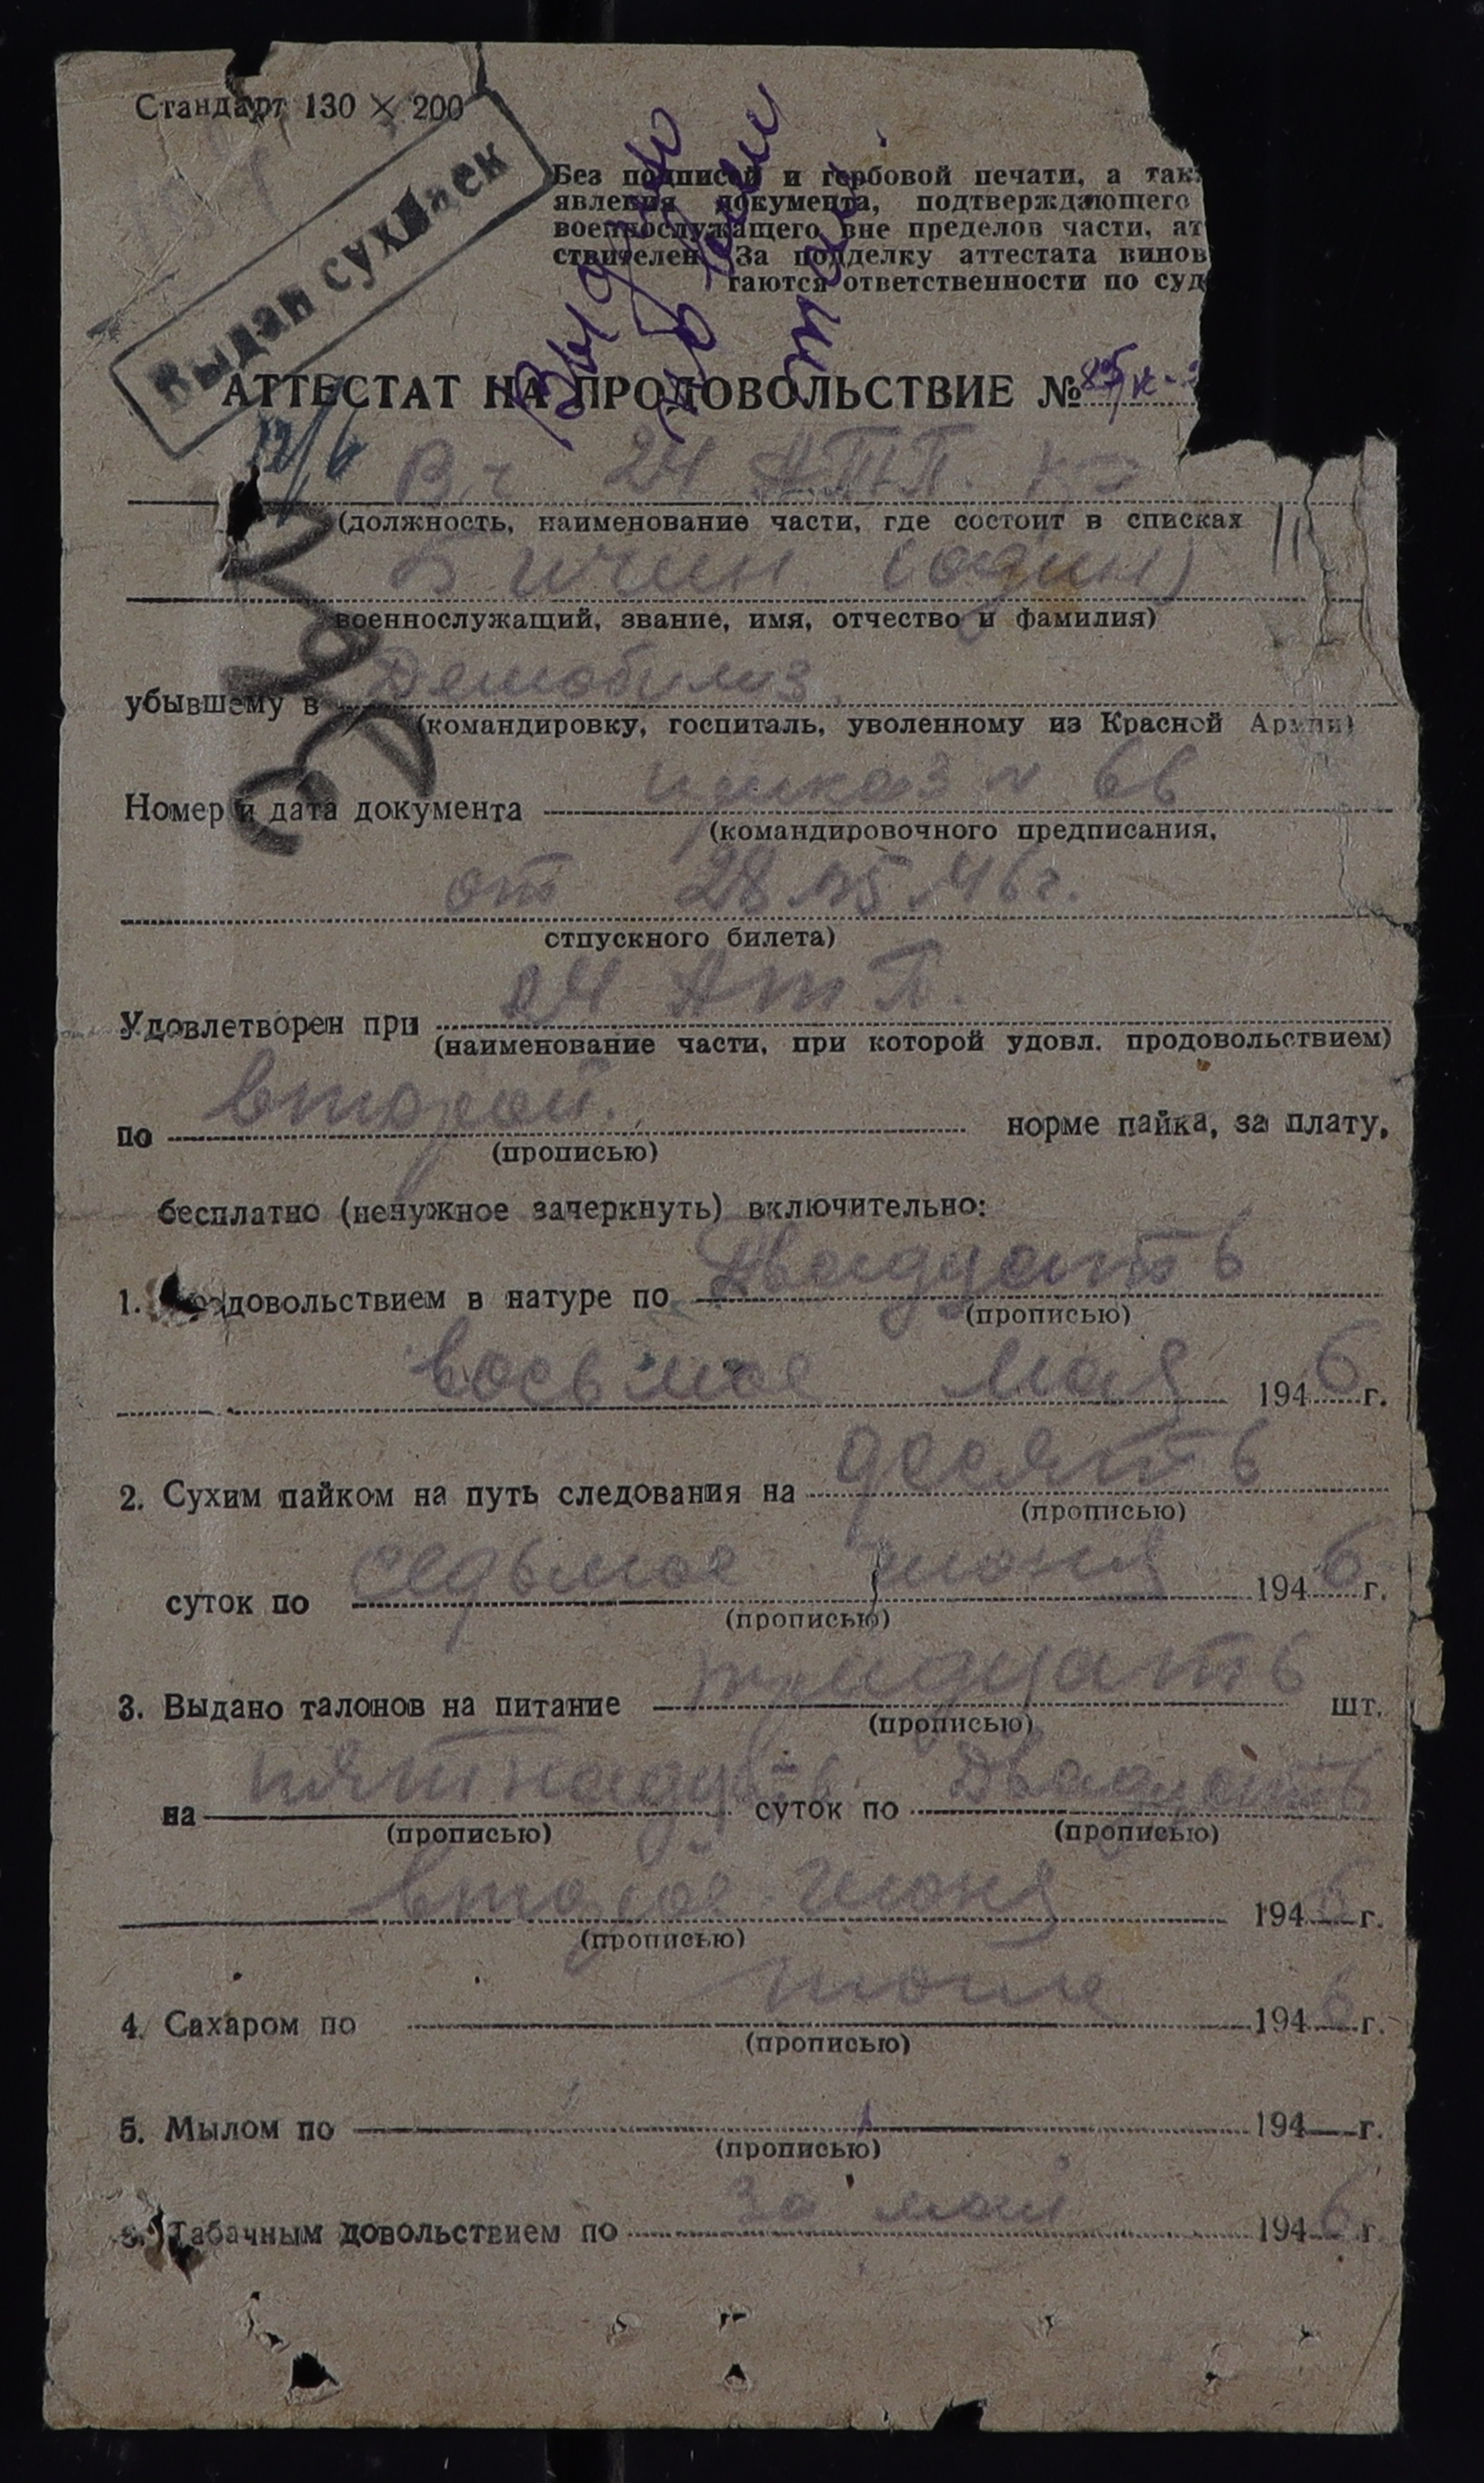 Стандарт 130 × 200
Выдан сухпаек
Без подписей и гербовой печати, а так
явления документа, подтверждающего
военнослужащего вне пределов части, ат
ствителен. За подделку аттестата винов
гаются ответственности по суд
АТТЕСТАТ НА ПРОДОВОЛЬСТВИЕ №
12/6
В.ч 24 АТП.
(должность, наименование части, где состоит в списках
Бичин (один)
военнослужащий, звание, имя, отчество и фамилия)
убывшему в Демобилиз.
(командировку, госпиталь, уволенному из Красной Армии)
Номер и дата документа приказ № 66
(командировочного предписания,
от 28/V 46 г.
отпускного билета)
Удовлетворен при 24 АТП.
(наименование части, при которой удовл. продовольствием)
по второй. норме пайка, за плату,
(прописью)
бесплатно (ненужное зачеркнуть) включительно:
1. довольствием в натуре по Двадцать
(прописью)
восьмое мая 1946 г.
2. Сухим пайком на путь следования на десять
(прописью)
суток по седьмое июня 1946 г.
(прописью)
3. Выдано талонов на питание тридцать шт.
(прописью)
на пятнадц-ь суток по Двадцать
(прописью) (прописью)
второе июня 1946 г.
(прописью)
4. Сахаром по 1946 г.
(прописью)
5. Мылом по 194 г.
(прописью)
6. Табачным довольствием по за май 1946 г